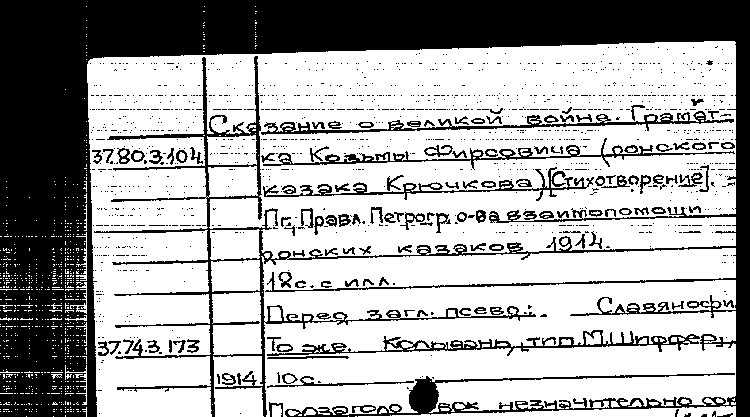 Сказание о великой война. Грамат-
37.80.3.104 ка Козьмы Фирсовича (донского
казака Крючкова) [Стихотворение]. -
Пг., Правл. Петрогр. о-ва взаимопомощи
донских казаков, 1914.
12 с. с илл.
Перед загл. псевд.: Славянофи
37.74.3.173 То же. Колывань, тип. М. Шиффер,
1914. 10 с.
незначительно сок